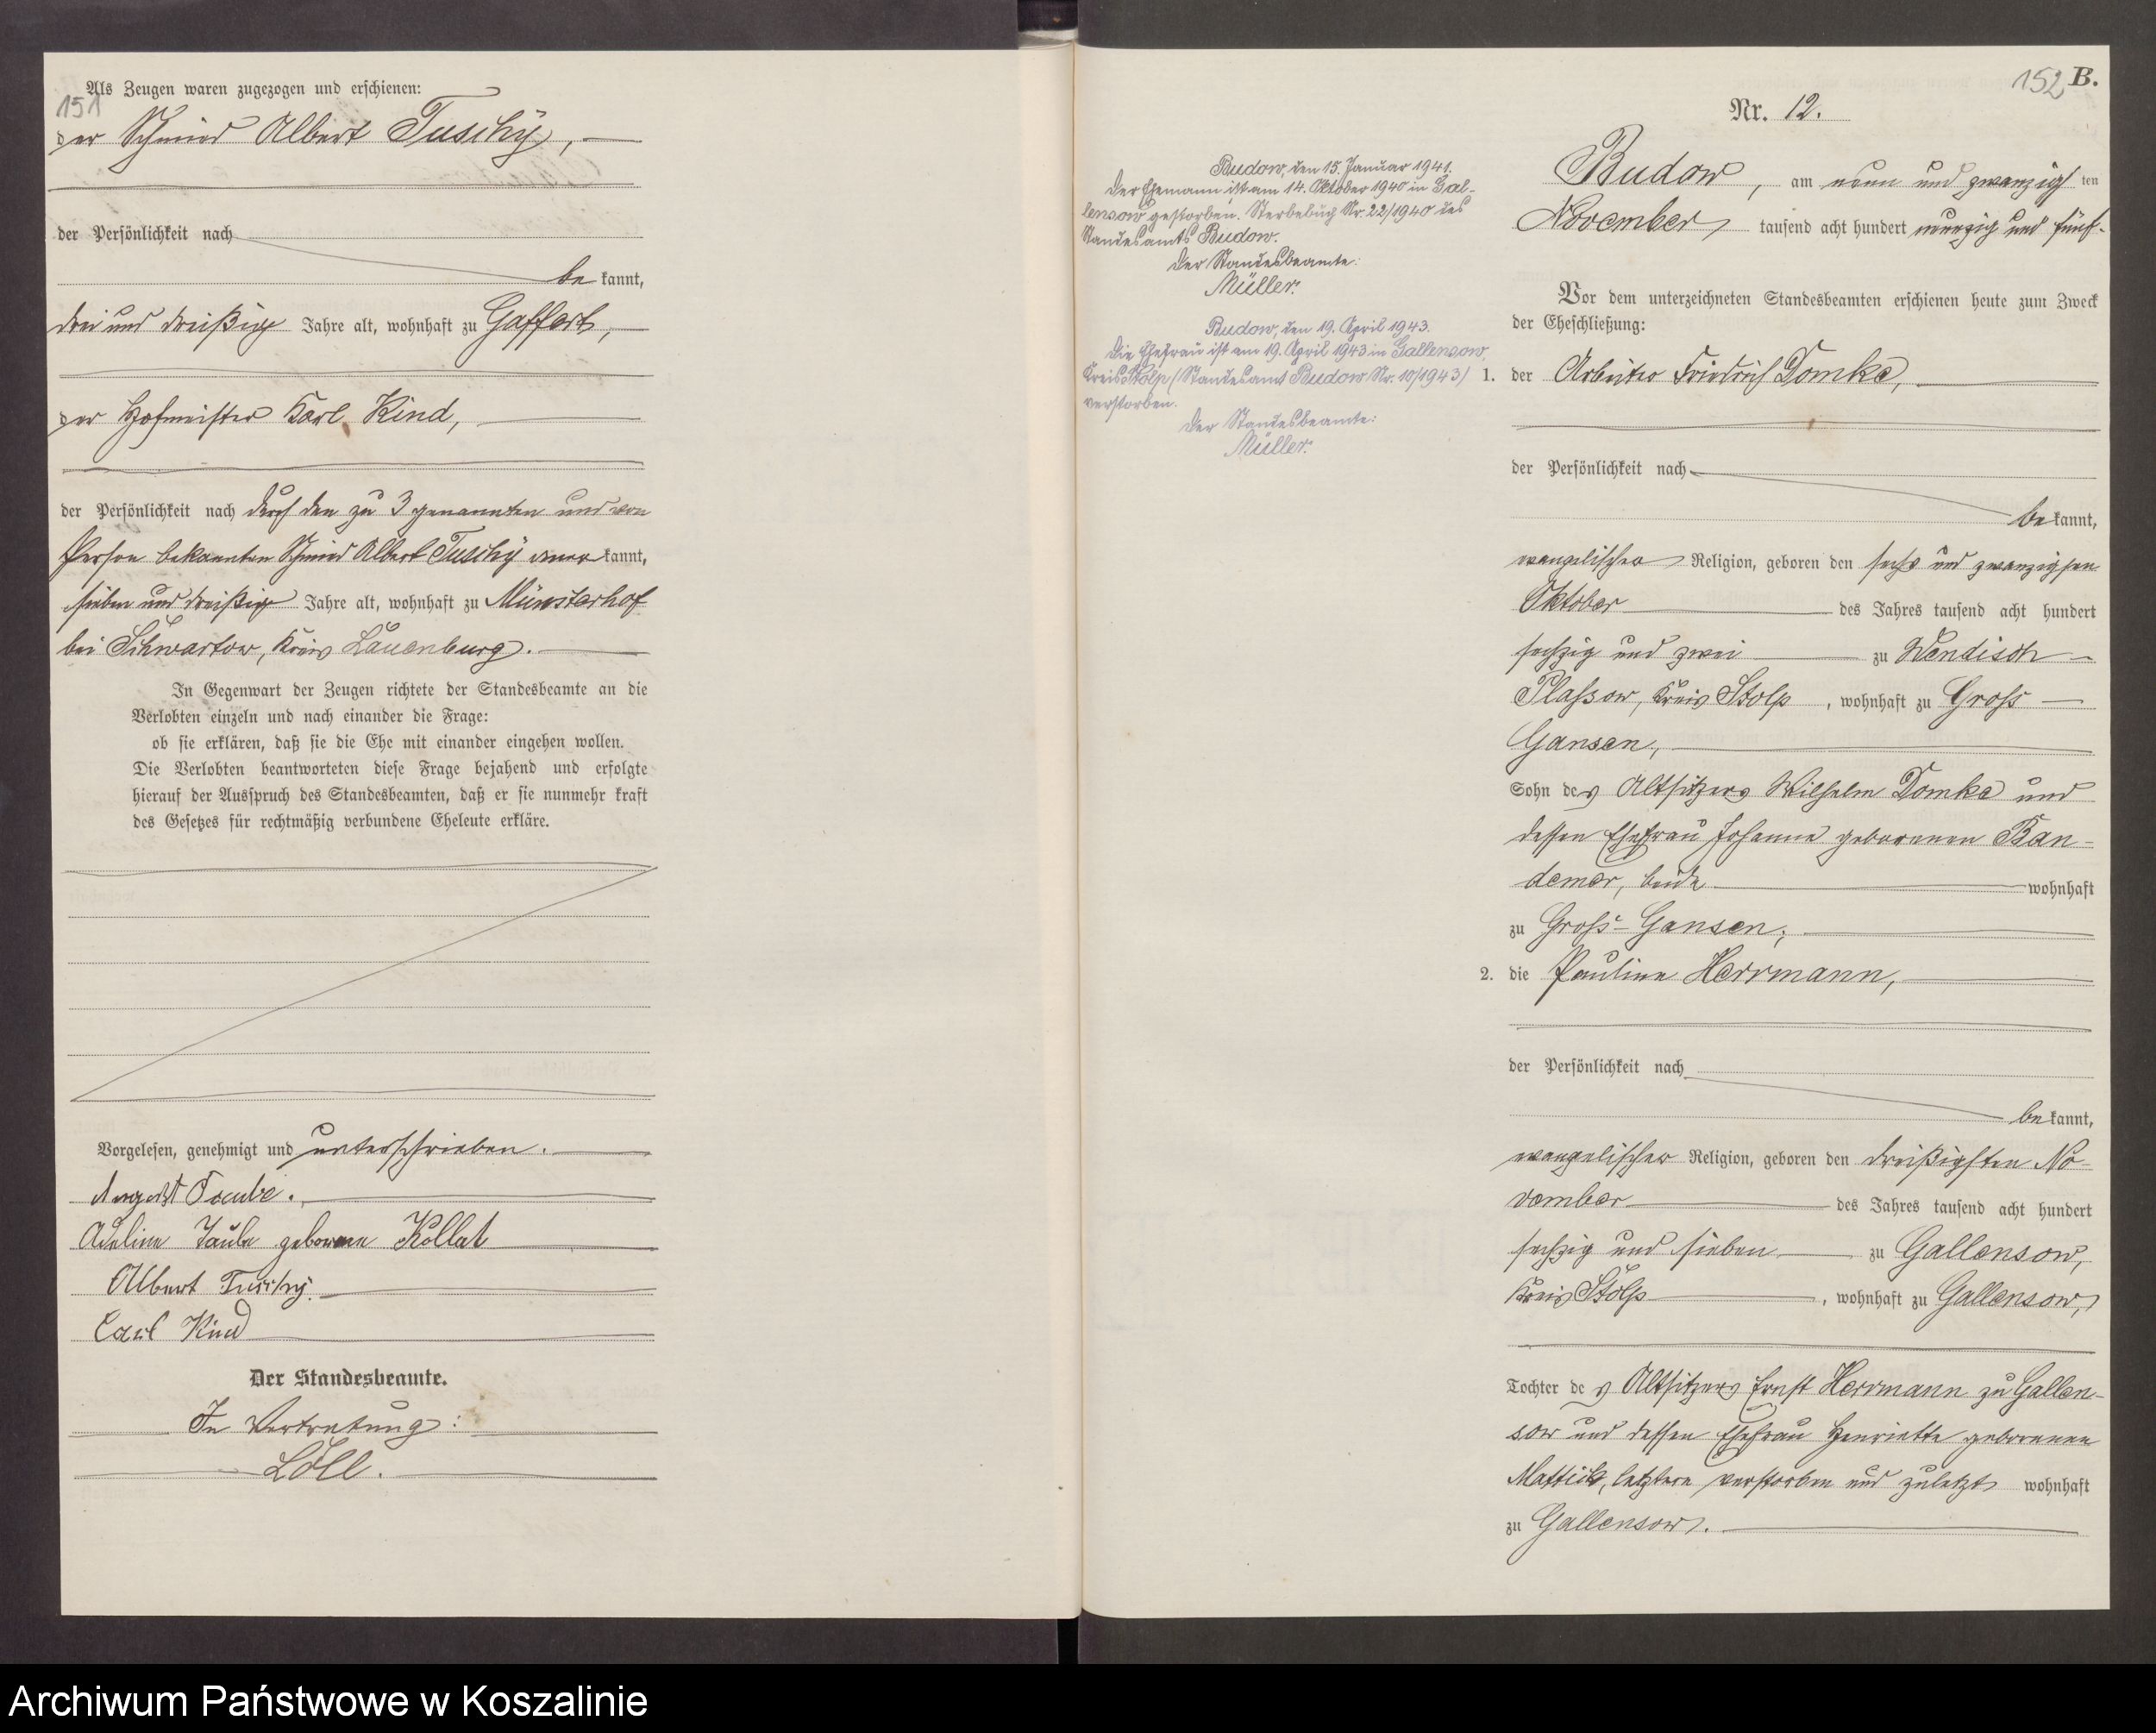 Als Zeugen waren zugezogen und erschienen:
151
der Schmied Albert Tuschy,
der Persönlichkeit nach
be kannt,
drei und dreißig Jahre alt, wohnhaft zu Gaffert,
der Hofmeister Karl Kind,
der Persönlichkeit nach durch den zu 3 genannten und von
Person bekannten Schmied Albert Tuschy aner kannt,
sieben und dreißig Jahre alt, wohnhaft zu Münsterhof
bei Schwartow, Kreis Lauenburg.
In Gegenwart der Zeugen richtete der Standesbeamte an die
Verlobten einzeln und nach einander die Frage:
ob sie erklären, daß sie die Ehe mit einander eingehen wollen.
Die Verlobten beantworteten diese Frage bejahend und erfolgte
hierauf der Ausspruch des Standesbeamten, daß er sie nunmehr kraft
des Gesetzes für rechtmäßig verbundene Eheleute erkläre.
Vorgelesen, genehmigt und unterschrieben.
August Taube.
Adeline Taube geborene Kollat
Albert Tuschy.
Carl Kind
Der Standesbeamte.
In Vertretung:
Löll.
152 B.
Nr. 12.
Budow, am neun und zwanzig ten
November tausend acht hundert neunzig und fünf.
Vor dem unterzeichneten Standesbeamten erschienen heute zum Zweck
der Eheschließung:
1. der Arbeiter Friedrich Domke,
der Persönlichkeit nach
be kannt,
evangelischer Religion, geboren den sechs und zwanzigsten
Oktober des Jahres tausend acht hundert
sechzig und zwei zu Wendisch
Plassow, Kreis Stolp, wohnhaft zu Gross
Gansen,
Sohn des Altsitzers Wilhelm Domke und
dessen Ehefrau Johanne geborenen Ban-
demer, beide wohnhaft
zu Gross-Gansen;
2. die Pauline Herrmann,
der Persönlichkeit nach
be kannt,
evangelischer Religion, geboren den dreißigsten No-
vember des Jahres tausend acht hundert
sechzig und sieben zu Gallensow,
Kreis Stolp, wohnhaft zu Gallensow,
Tochter des Altsitzers Ernst Herrmann zu Gallen-
sow und dessen Ehefrau Henriette geborenen
letztere verstorben und zuletzt wohnhaft
zu Gallensow.
Budow, den 15. Januar 1941.
Der Ehemann ist am 14. Oktober 1940 in Gal-
lensow gestorben. Sterbebuch Nr. 22/1940 des
Standesamts Budow.
Der Standesbeamte:
Müller.
Budow, den 19. April 1943.
Die Ehefrau ist am 19. April 1943 in Gallensow,
Kreis Stolp (Standesamt Budow Nr. 10/1943)
verstorben.
Der Standesbeamte:
Müller.
Archiwum Państwowe w Koszalinie